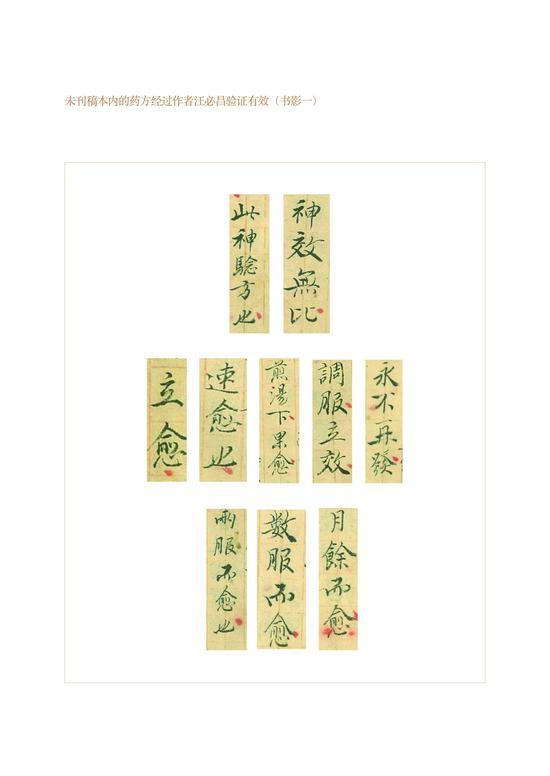 未刊稿本内的药方经过作者汪必昌验证有效（书影一）
神效無比
此神驗方也
永不再發
調服立效
煎湯下果愈
速愈也
立愈
月餘而愈
数服而愈
兩服而愈也